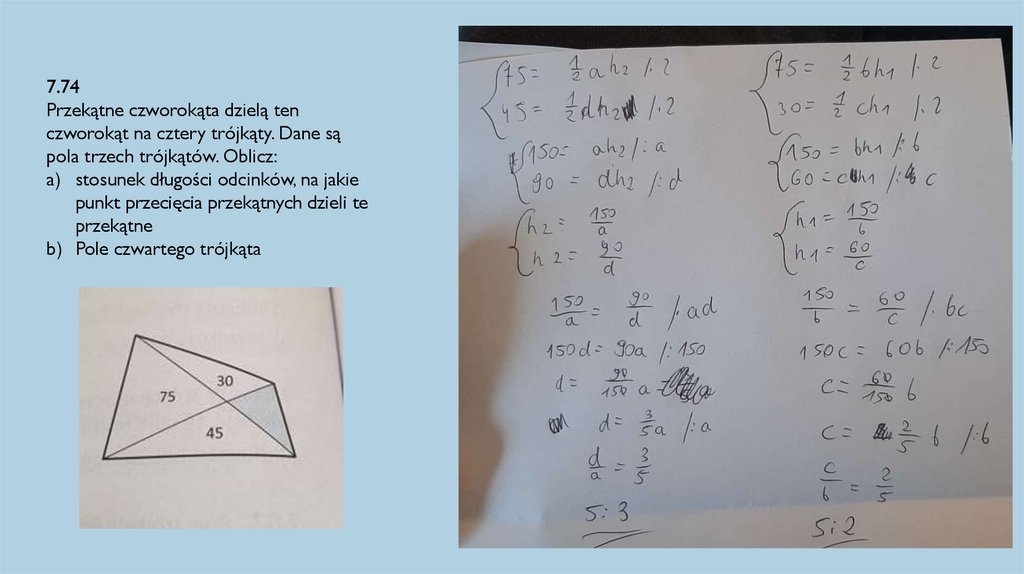 7.74
Przekątne czworokąta dzielą ten
czworokąt na cztery trójkąty. Dane są
pola trzech trójkątów. Oblicz:
a) stosunek długości odcinków, na jakie
punkt przecięcia przekątnych dzieli te
przekątne
b) Pole czwartego trójkąta
30
75
45
75 = 1/2 a h2 /·2
45 = 1/2 d h2 /·2
150 = ah2 /: a
90 = dh2 /: d
h2 = 150/a
h2 = 90/d
150/a = 90/d /·ad
150d = 90a /:150
d = 90/150 a
d = 3/5 a /:a
d/a = 3/5
5:3
75 = 1/2 bh1 /·2
30 = 1/2 ch1 /·2
150 = bh1 /: b
60 = ch1 /: c
h1 = 150/b
h1 = 60/c
150/b = 60/c /·bc
150c = 60b /:150
c = 60/150 b
c = 2/5 b /:b
c/b = 2/5
5:2